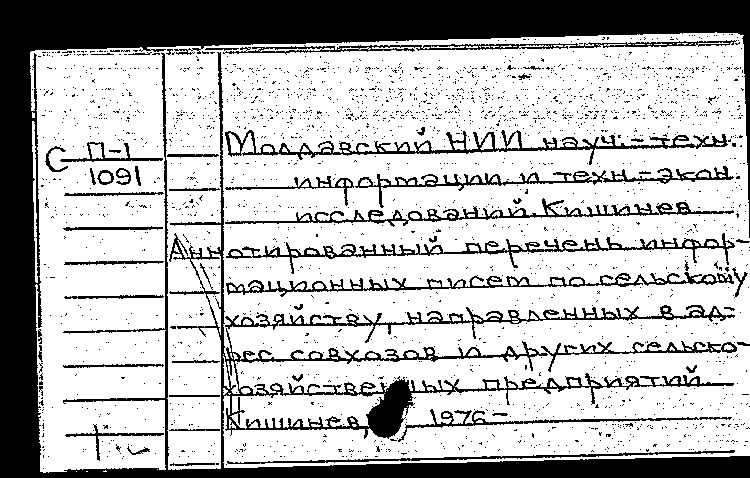 С П-1
1091
Молдавский НИИ науч.-техн.
информации и техн.-экон.
исследований. Кишинев
Аннотированный перечень инфор-
мационных писем по сельскому
хозяйству, направленных в ад-
рес совхозов и других сельско-
хозяйственных предприятий.
Кишинев, 1976-